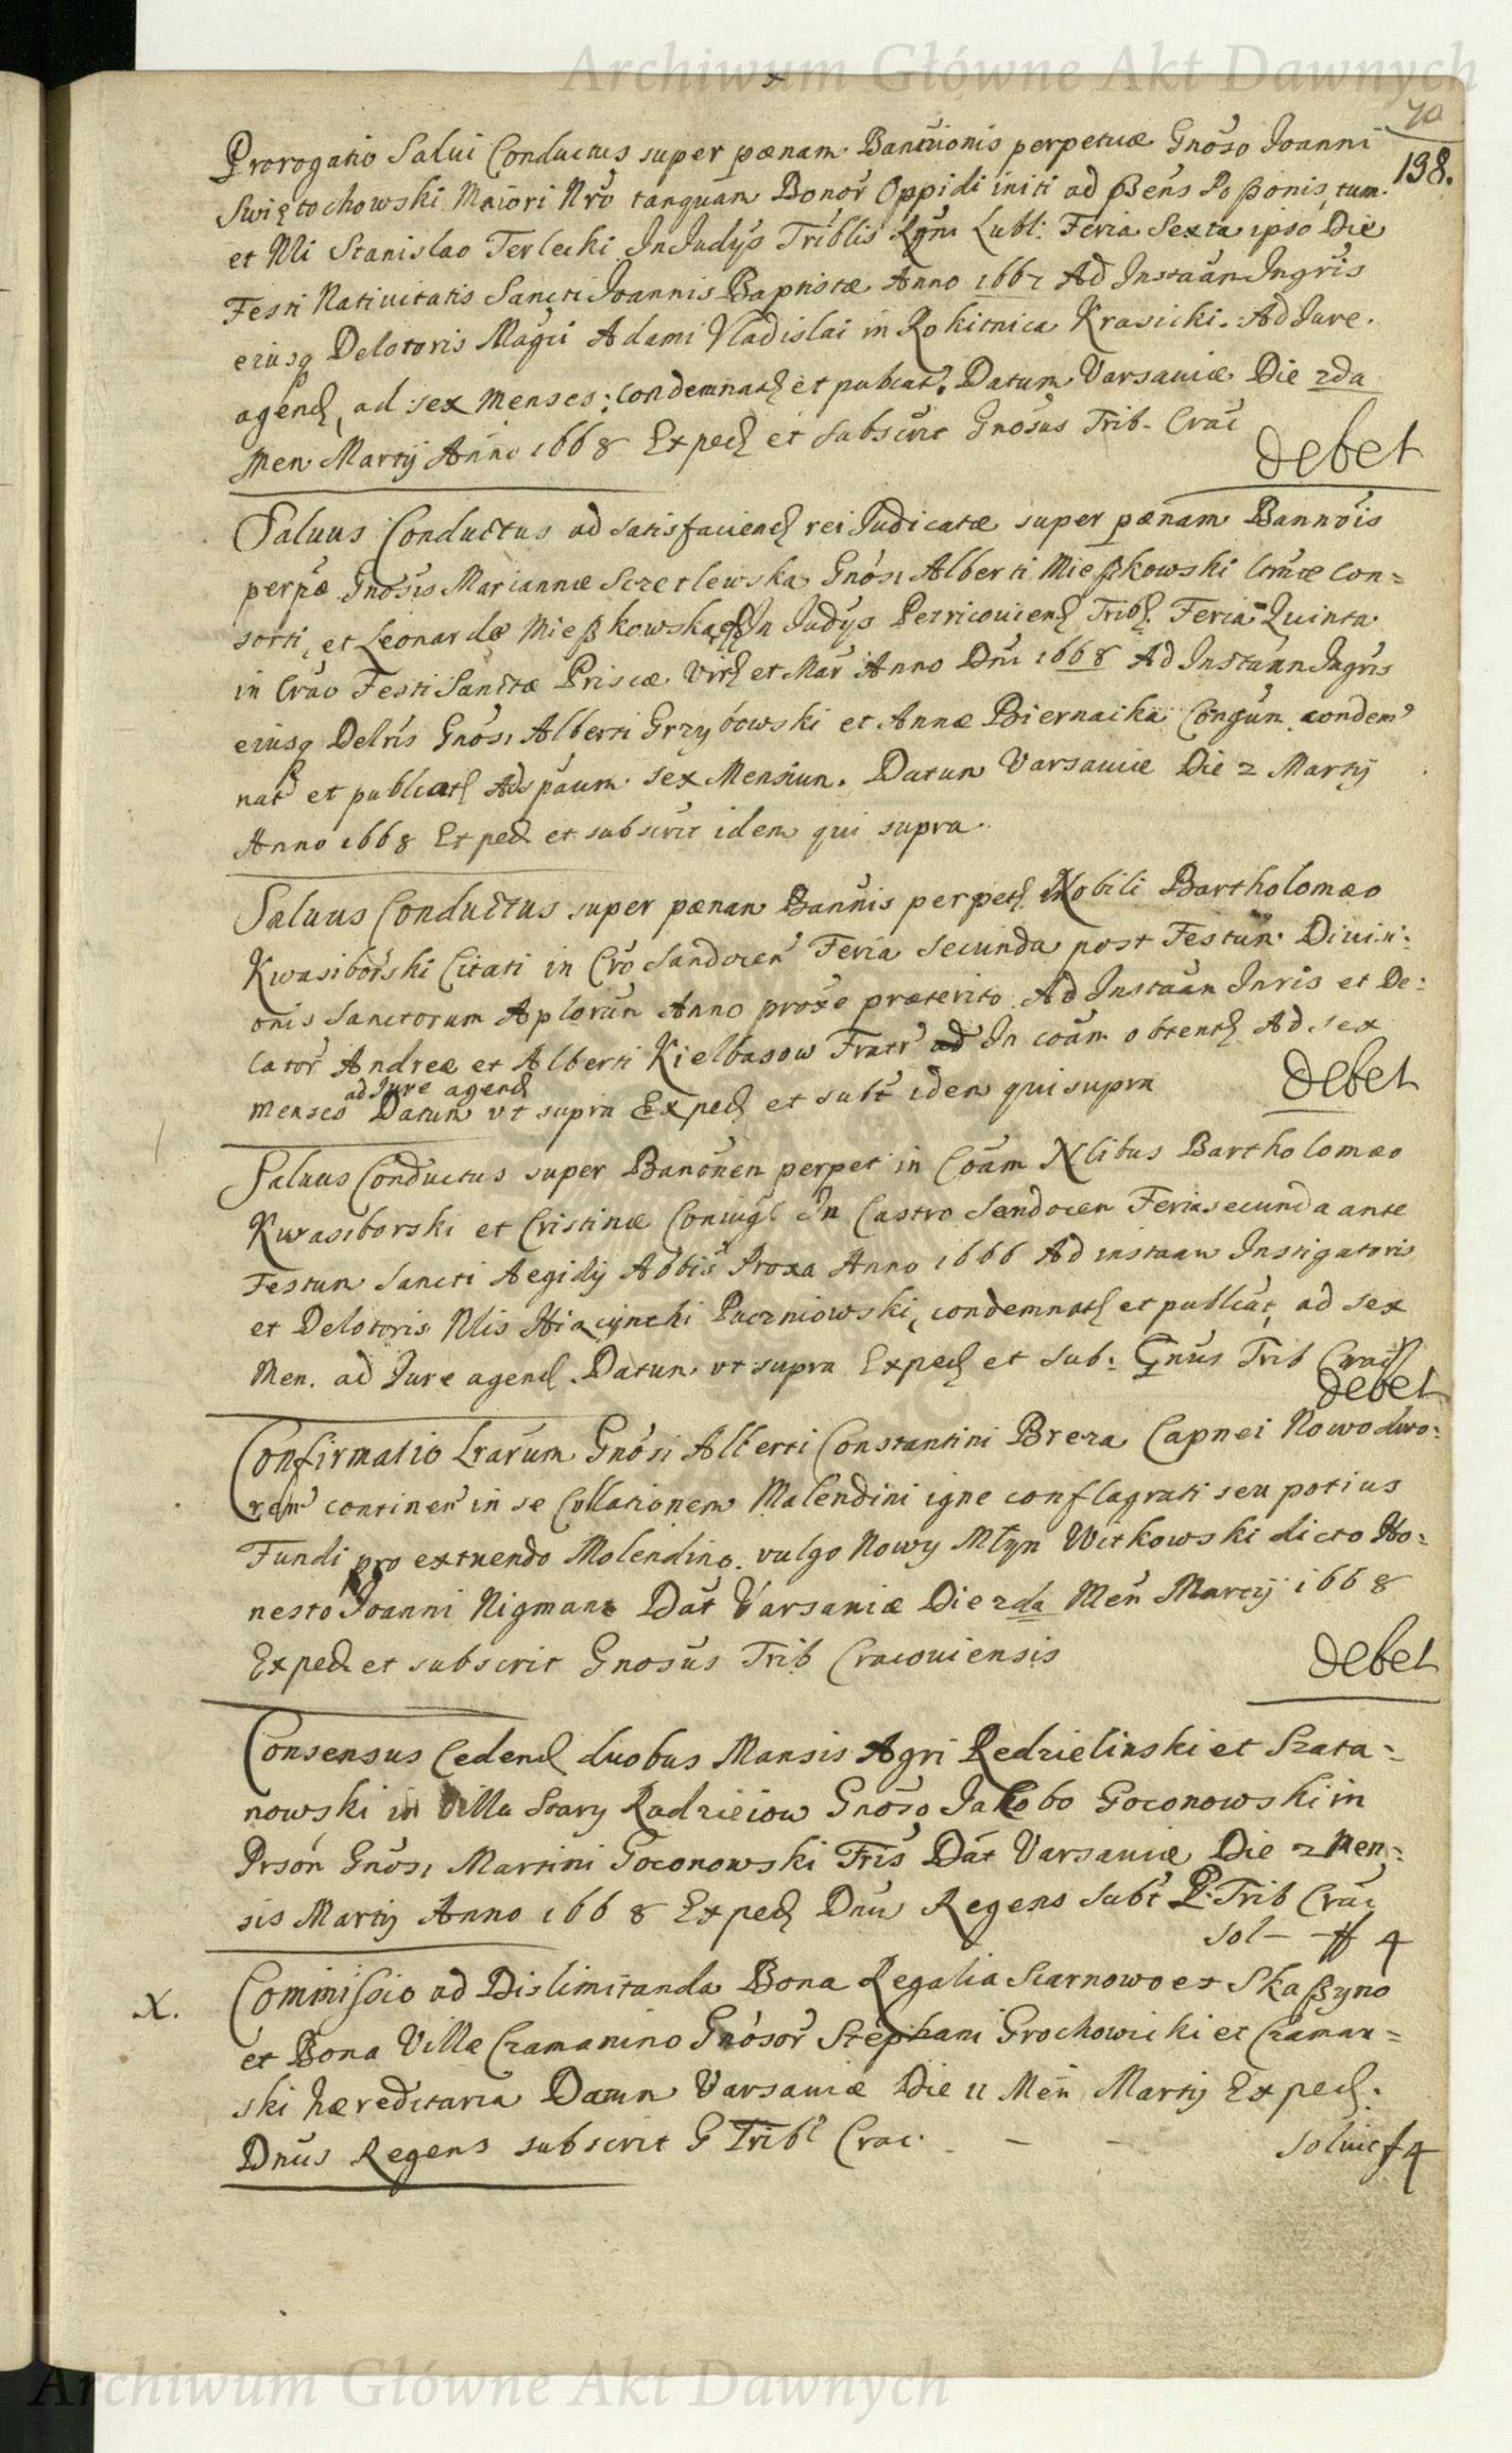 Archiwum Główne Akt Dawnych
70
198.
Prorogatio Salui Conductus super pænam Bannionis perpetuæ Gnoso Joanni
Swiętochowski Maiori Nro tanquam Bonor Oppidi initi ad ßens Poßonis, tum
et Nli Stanislao Terlecki In Judys Triblis Rgni Lubl: Feria Sexta ipso Die
Festi Natiuitatis Sancti Joannis Baptistæ Anno 1667 Ad Instaan Ingris
eiusq Delotoris Magci Adami Vladislai in Rokitnica Krasicki. Ad Jure
agend, ad sex Menses: condemnat et publcat. Datum Varsauiæ Die 2da
Men Martij Anno 1668 Exped et subscrit Gnosus Trib. Crac
debet
Saluus Conductus ad satisfaciend rei Judicatæ super pænam Bannois
perpæ Gnosis Mariannæ Sczetlewska Gnosi Alberti Mießkowski Comæ Con=
sorti, et Leonardæ Mießkowska In Judys Petricouien Trib. Feria Quinta
in Crao Festi Sanctæ Priscæ Virg et Mar Anno Dni 1668 Ad Instaan Ingris
eiusq Delris Gnosi Alberti Grzybowski et Annæ Biernacka Congum condem
nat et publcat Ad spaum sex Mensium. Datum Varsauiæ Die 2 Martij
Anno 1668 Exped et subscrit idem qui supra.
Saluus Conductus super pænam Bannis perpet Nobili Bartholomæo
Kwasiborski Citati in Cro Sandocen Feria secunda post Festum Diuisi:
onis Sanctorum Aplorum Anno proxe præterito Ad Instaan Inris et De:
lator Andreæ et Alberti Kielbasow Fratr In coam obtent Ad sex
ad Jure agend
menses Datum vt supra Exped et subt idem qui supra
debet
Saluus Conductus super Banonem perpet in Coam Nlibus Bartholomæo
Kwasiborski et Cristinæ Coniug In Castro Sendocen Feria secunda ante
Festum Sancti Aegidij Abbis Proxa Anno 1666 Ad instaan Instigatoris
et Delotoris Nlis Hiacynthi Puczniowski, condemnat et publcat, ad sex
Men. ad Jure agend. Datum vt supra Exped et Sub: Gnus Trib Crac
debet
Confirmatio Lrarum Gnosi Alberti Constantini Breza Capnei Nowodwo:
ren continen in se Collationem Malendini igne conflagrati seu potius
Fundi pro extruendo Molendino vulgo Nowy Młyn Witkowski dicto Ho:
nesto Joanni Nigmant Dat Varsauiæ Die 2da Men Martij 1668
Exped et subscrit Gnosus Trib Cracouiensis
debet
Consensus Cedend duobus Mansis Agri Redzielinski et Szata=
nowski in Villa Stary Radzieiow Gnoso Jakobo Goconowski in
Prson Gnosi Martini Goconowski Fris Dat Varsauiæ Die 2 Men:
sis Martij Anno 1668 Exped Dnus Regens Subt P. Trib Crac
Sol — ff 4
X.
Commissio ad Dislimitanda Bona Regalia Sarnowo et Skaßyno
et Bona Villæ Czamanino Gnosor Stephani Grochowicki et Czaman=
ski hæreditaria Datum Varsauiæ Die 11 Men Martij Exped:
Dnus Regens subscrit G Tribl Crac. — —
Soluit f 4
Archiwum Główne Akt Dawnych